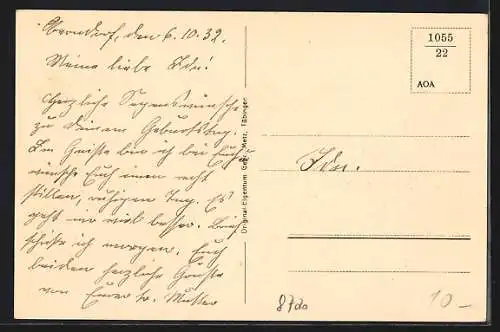 Oberndorf, den 6.10.32.
Meine liebe Ida!
Herzliche Segenswünsche
zu deinem Geburtstag.
Im Geiste bin ich bei Euch u.
wünsche Euch einen recht
stillen, ruhigen Tag. Es
geht mir viel besser. Brief
schicke ich morgen. Euch
beiden herzliche Grüße
von Eurer tr. Mutter
Original-Eigentum Gebr. Metz, Tübingen
1055
22
AOA
Ida.
10-